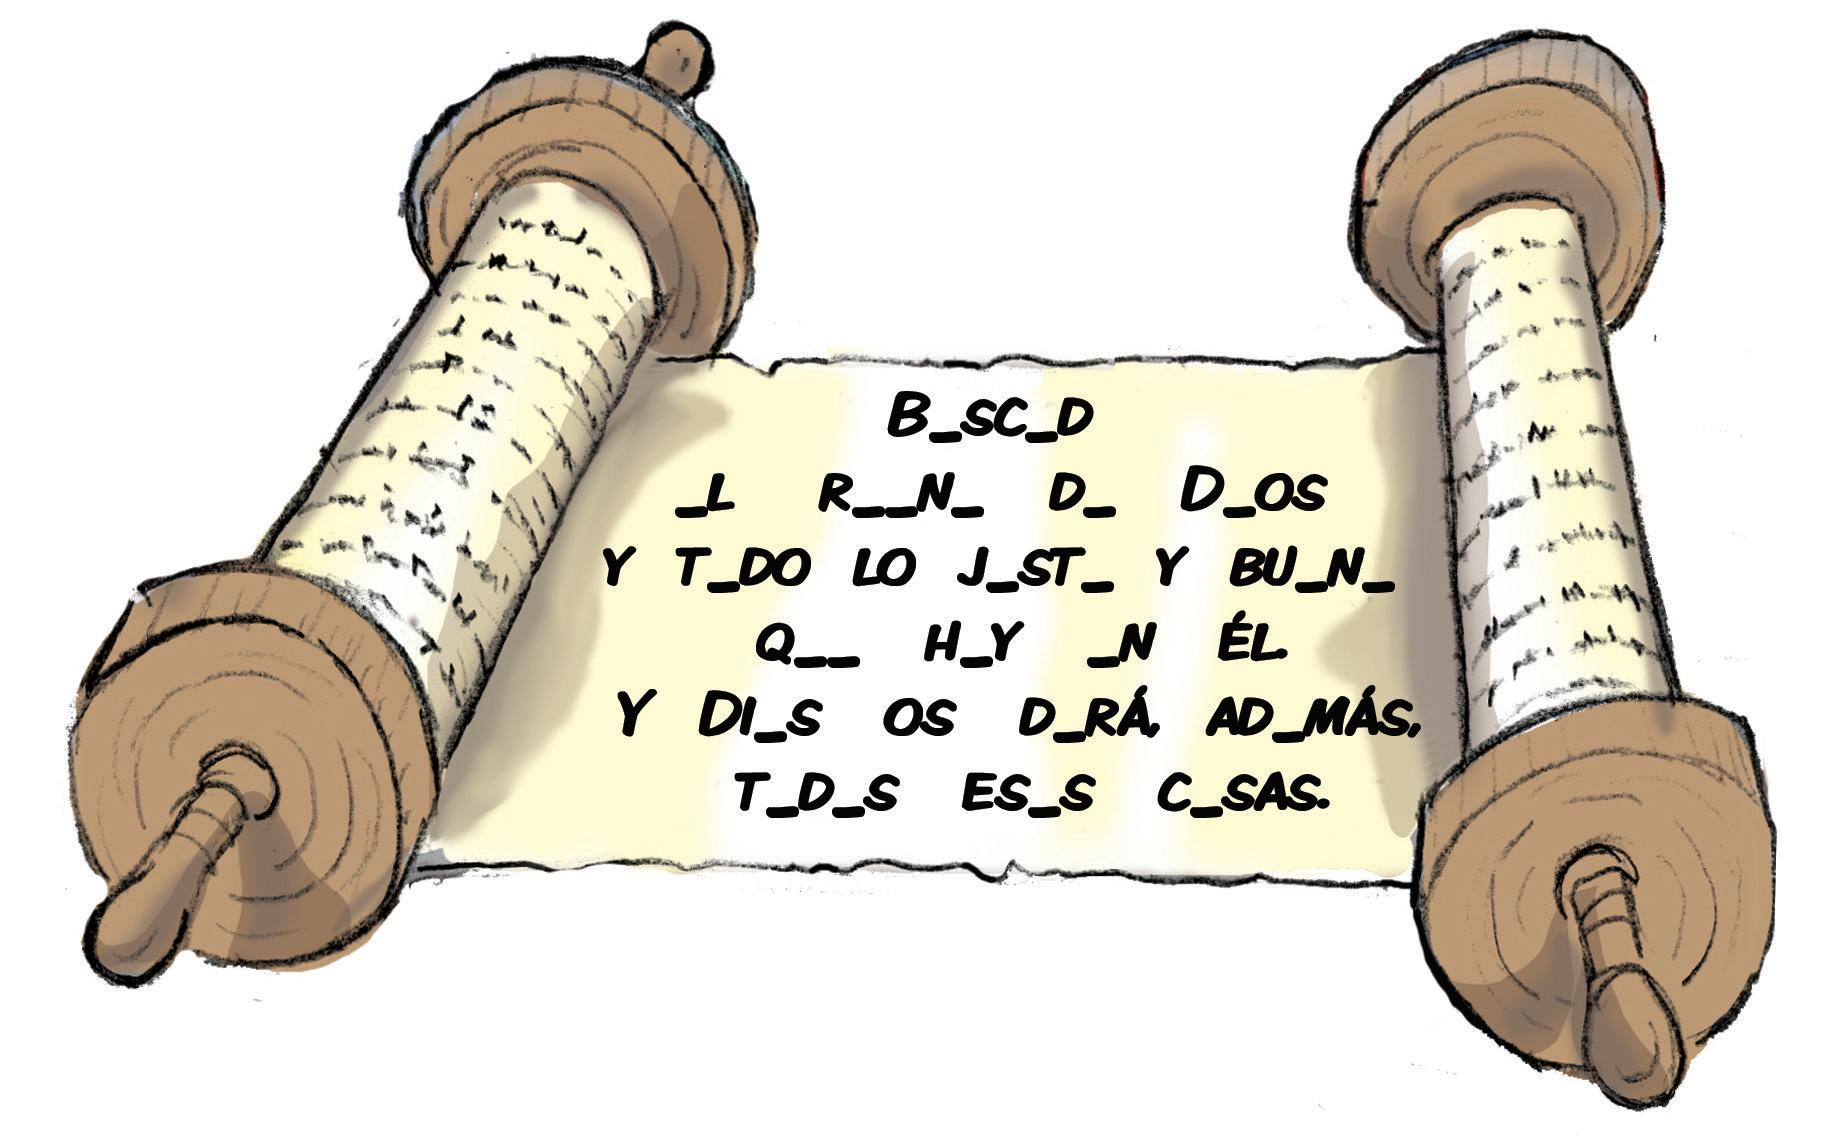 B_SC_D
_L R__N_ D_ D_OS
Y T_DO LO J_ST_ Y BU_N_
Q__ H_Y _N ÉL.
Y DI_S OS D_RÁ, AD_MÁS,
T_D_S ES_S C_SAS.